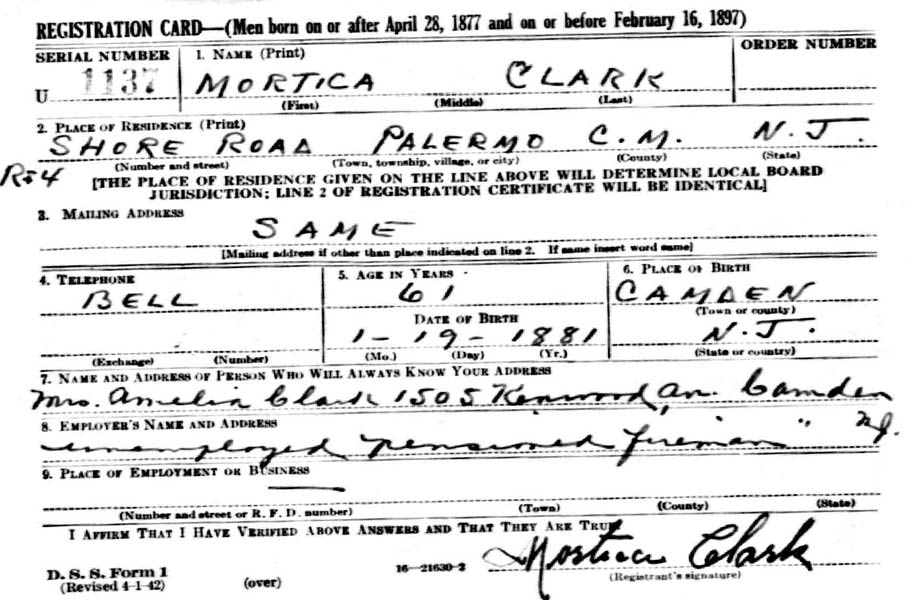 REGISTRATION CARD—(Men born on or after April 28, 1877 and on or before February 16, 1897)
SERIAL NUMBER 1. NAME (Print) ORDER NUMBER
U 1137 MORTICA CLARK
(First) (Middle) (Last)
2. PLACE OF RESIDENCE (Print)
SHORE ROAD PALERMO C.M. N.J.
(Number and street) (Town, township, village, or city) (County) (State)
R=4 [THE PLACE OF RESIDENCE GIVEN ON THE LINE ABOVE WILL DETERMINE LOCAL BOARD
JURISDICTION; LINE 2 OF REGISTRATION CERTIFICATE WILL BE IDENTICAL]
3. MAILING ADDRESS
SAME
[Mailing address if other than place indicated on line 2. If same insert word same]
4. TELEPHONE 5. AGE IN YEARS 6. PLACE OF BIRTH
BELL 61 CAMDEN
(Town or county)
DATE OF BIRTH
1-19-1881 N.J.
(Exchange) (Number) (Mo.) (Day) (Yr.) (State or country)
7. NAME AND ADDRESS OF PERSON WHO WILL ALWAYS KNOW YOUR ADDRESS
Mrs. Amelia Clark 1505 Kenwood Av. Camden
8. EMPLOYER'S NAME AND ADDRESS
unemployed "pensioned fireman" N.J.
9. PLACE OF EMPLOYMENT OR BUSINESS
(Number and street or R. F. D. number) (Town) (County) (State)
I AFFIRM THAT I HAVE VERIFIED ABOVE ANSWERS AND THAT THEY ARE TRUE
D. S. S. Form 1 16—21630-2 Mortica Clark
(Revised 4-1-42) (over) (Registrant's signature)